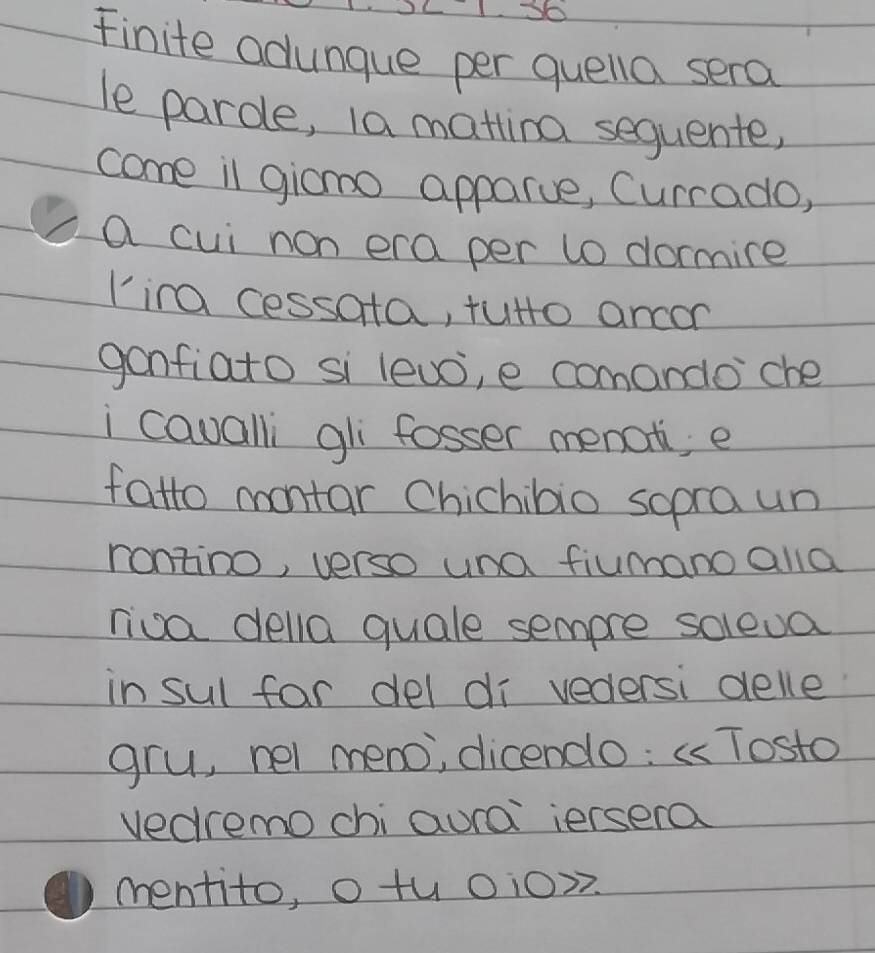 Finite adunque per quella sera
le parole, la mattina seguente,
come il giorno apparve, Currado,
a cui non era per lo dormire
l'ira cessata, tutto ancor
gonfiato si levò, e comandò che
i cavalli gli fosser menati; e
fatto montar Chichibio sopra un
ronzino, verso una fiumano alla
riva della quale sempre soleva
in sul far del dí vedersi delle
gru, nel menò, dicendo: «Tosto
vedremo chi avrà iersera
mentito, o tu o io».